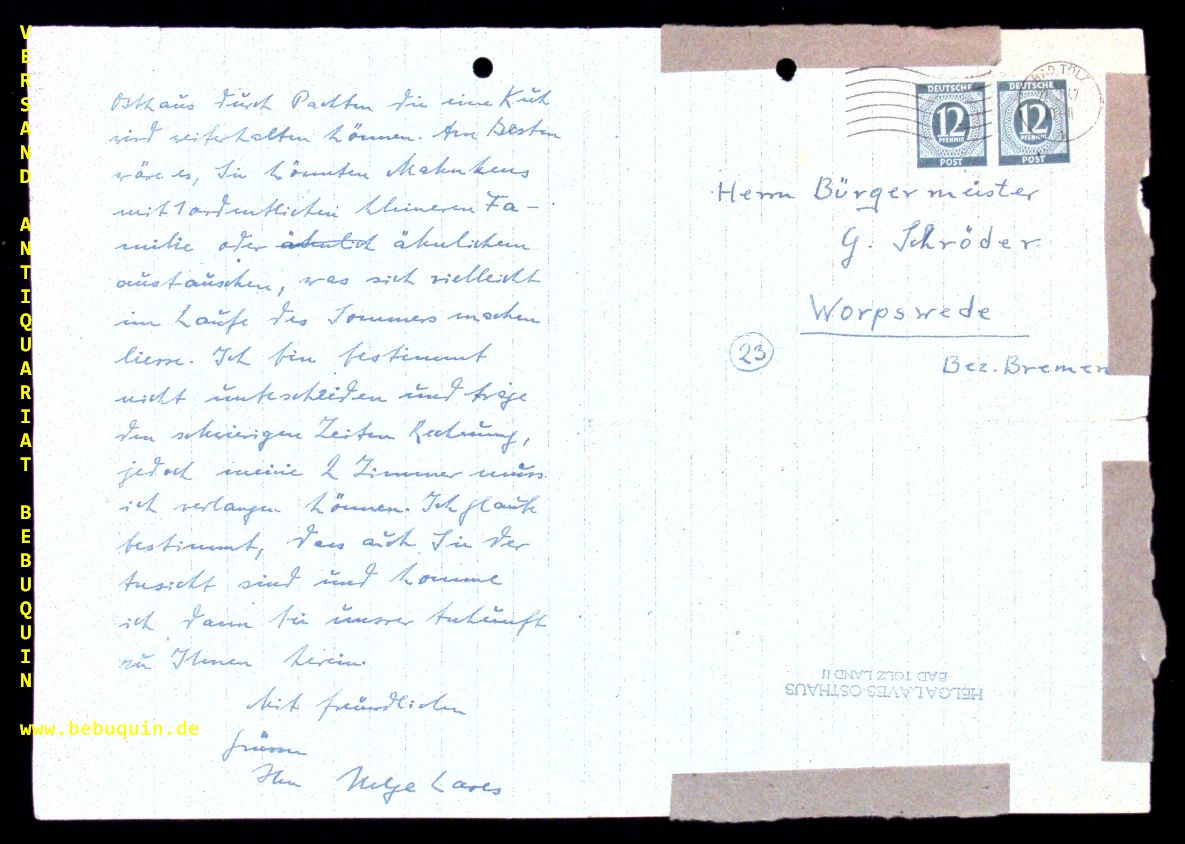 VERSAND ANTIQUARIAT BEBUQUIN
www.bebuquin.de
Osthaus durch Pachten die eine Kuh
wird weiterhalten können. Am Besten
wäre es, Sie könnten Mahnkens
mit 1 ordentlichen kleineren Fa-
milie oder ähnlich ähnlichem
austauschen, was sich vielleicht
im Laufe des Sommers machen
liesse. Ich bin bestimmt
nicht unbescheiden und trage
den schwierigen Zeiten Rechnung,
jedoch meine 2 Zimmer muss
ich verlangen können. Ich glaube
bestimmt, dass auch Sie der
Ansicht sind und komme
ich dann bei unsrer Ankunft
zu Ihnen herein.
Mit freundlichen
Grüssen
Ihre Helga Laves
DEUTSCHE
12
PFENNIG
POST
DEUTSCHE
12
PFENNIG
POST
BAD TÖLZ
Herrn Bürgermeister
G. Schröder
Worpswede
23
Bez. Bremen
HELGA LAVES-OSTHAUS
BAD TÖLZ LAND II